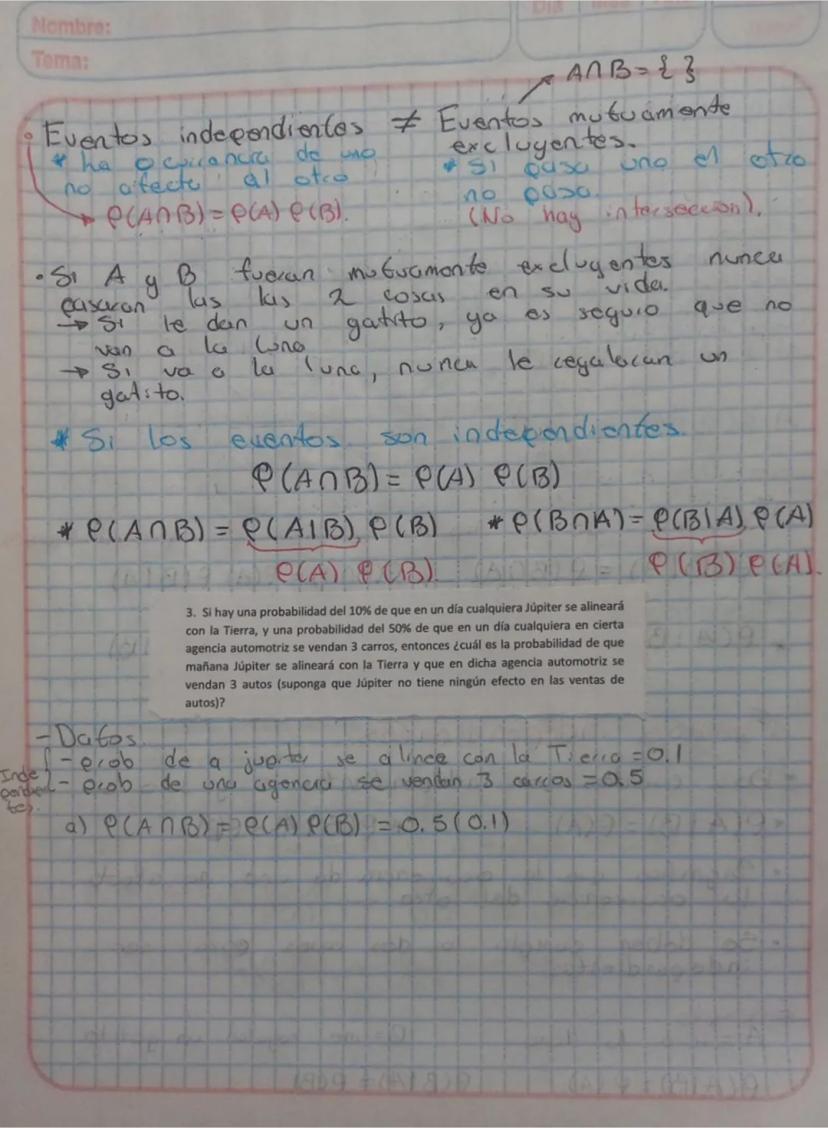 Nombre:
Tema:
Día
A∩B = { }
Eventos independientes ≠ Eventos mutuamente excluyentes.
* ha ocurrancia de uno no afecta al otro
P(A∩B) = P(A) P(B).
* Si pasa uno el otro no pasa.
(No hay intersección).
• Si A y B fueran mutuamente excluyentes nunca
pasaran las las 2 cosas en su vida.
→ Si le dan un gatito, ya es seguro que no
van a la luna
→ Si va a la luna, nunca le regalaran un
gatito.
* Si los eventos son independientes.
P(A∩B) = P(A) P(B)
* P(A∩B) = P(A|B) P(B) * P(B∩A) = P(B|A) P(A)
P(A) P(B). P(B) P(A).
3. Si hay una probabilidad del 10% de que en un día cualquiera Júpiter se alineará
con la Tierra, y una probabilidad del 50% de que en un día cualquiera en cierta
agencia automotriz se vendan 3 carros, entonces ¿cuál es la probabilidad de que
mañana Júpiter se alineará con la Tierra y que en dicha agencia automotriz se
vendan 3 autos (suponga que Júpiter no tiene ningún efecto en las ventas de
autos)?
- Datos
- prob de a se alinee con la Tierra = 0.1
- prob de una agencia se vendan 3 carros = 0.5
a) P(A∩B) = P(A) P(B) = 0.5(0.1)